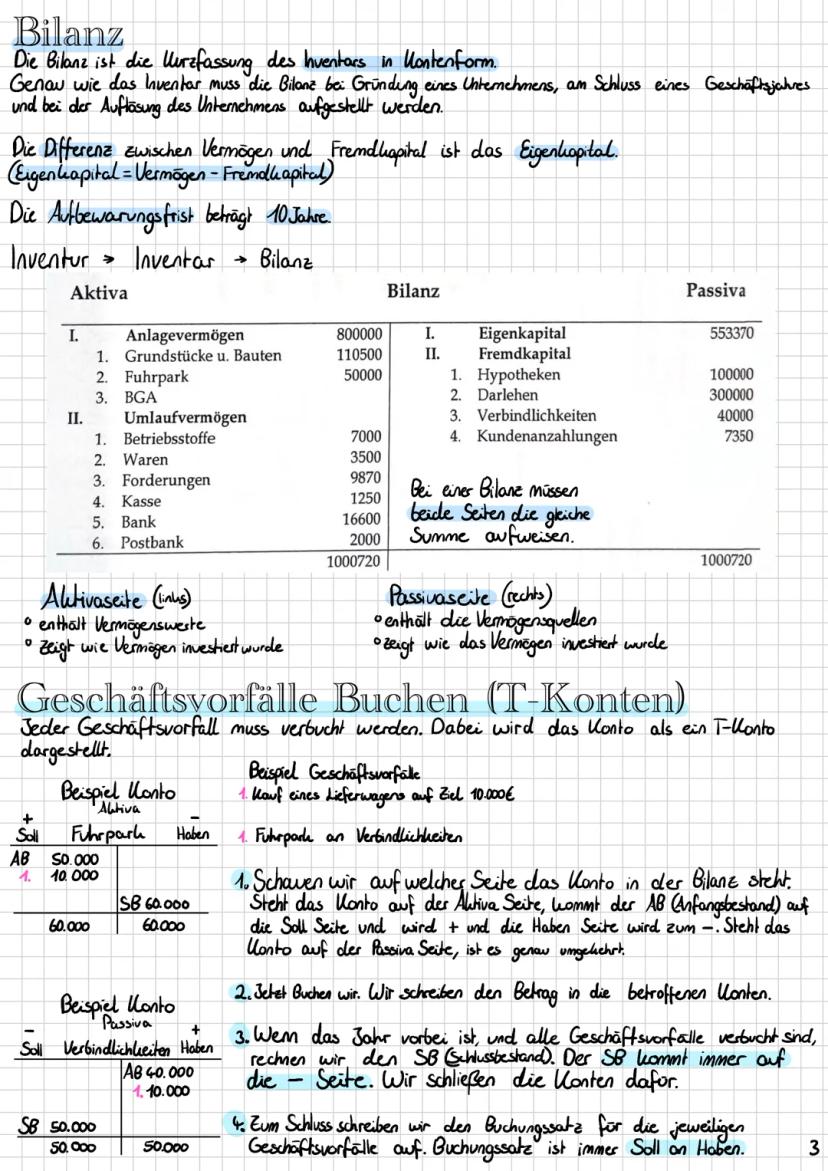 Bilanz
Die Bilanz ist die Kurzfassung des Inventars in Kontenform.
Genau wie das Inventar muss die Bilanz bei Gründung eines Unternehmens, am Schluss eines Geschäftsjahres
und bei der Auflösung des Unternehmens aufgestellt werden.
Die Differenz zwischen Vermögen und Fremdkapital ist das Eigenkapital.
(Eigenkapital = Vermögen - Fremdkapital)
Die Aufbewarungsfrist beträgt 10 Jahre.
Inventur → Inventar → Bilanz
Aktiva Bilanz Passiva
I. Anlagevermögen 800000 I. Eigenkapital 553370
1. Grundstücke u. Bauten 110500 II. Fremdkapital
2. Fuhrpark 50000 1. Hypotheken 100000
3. BGA 2. Darlehen 300000
II. Umlaufvermögen 3. Verbindlichkeiten 40000
1. Betriebsstoffe 7000 4. Kundenanzahlungen 7350
2. Waren 3500
3. Forderungen 9870
4. Kasse 1250
5. Bank 16600
6. Postbank 2000
Bei einer Bilanz müssen
beide Seiten die gleiche
Summe aufweisen.
1000720 1000720
Aktivaseite (links)
° enthält Vermögenswerte
° zeigt wie Vermögen investiert wurde
Passivaseite (rechts)
° enthält die Vermögensquellen
° zeigt wie das Vermögen investiert wurde
Geschäftsvorfälle Buchen (T-Konten)
Jeder Geschäftsvorfall muss verbucht werden. Dabei wird das Konto als ein T-Konto
dargestellt.
Beispiel Geschäftsvorfälle
1. Kauf eines Lieferwagens auf Ziel 10.000€
1. Fuhrpark an Verbindlichkeiten
Beispiel Konto
Aktiva
+ -
Soll Fuhrpark Haben
AB 50.000
1. 10.000
SB 60.000
60.000 60.000
1. Schauen wir auf welcher Seite das Konto in der Bilanz steht.
Steht das Konto auf der Aktiva Seite, kommt der AB (Anfangsbestand) auf
die Soll Seite und wird + und die Haben Seite wird zum -. Steht das
Konto auf der Passiva Seite, ist es genau umgekehrt.
2. Jetzt Buchen wir. Wir schreiben den Betrag in die betroffenen Konten.
Beispiel Konto
Passiva
- +
Soll Verbindlichkeiten Haben
AB 40.000
1. 10.000
SB 50.000
50.000 50.000
3. Wenn das Jahr vorbei ist, und alle Geschäftsvorfälle verbucht sind,
rechnen wir den SB (Schlussbestand). Der SB kommt immer auf
die - Seite. Wir schließen die Konten dafor.
4. Zum Schluss schreiben wir den Buchungssatz für die jeweiligen
Geschäftsvorfälle auf. Buchungssatz ist immer Soll an Haben.
3